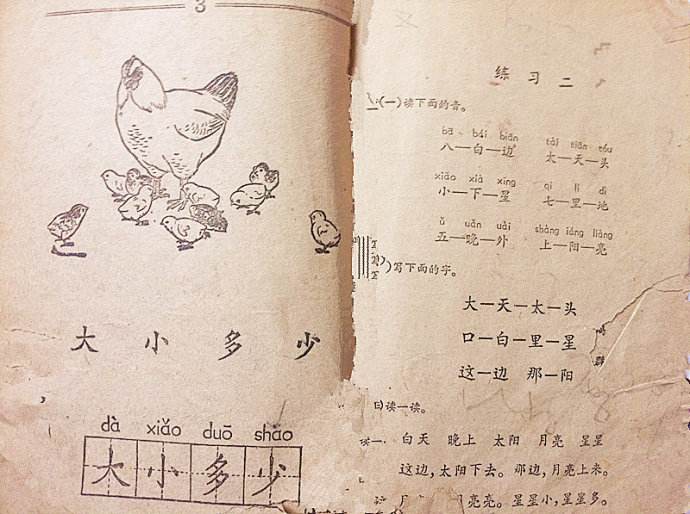 3
大 小 多 少
dà xiǎo duō shǎo
大 小 多 少
练 习 二
(一)读下面的音。
bā bái biān tài tiān tóu
八—白—边 太—天—头
xiǎo xià xīng qī lǐ dì
小—下—星 七—里—地
ǔ uǎn uài shàng iáng liàng
五—晚—外 上—阳—亮
)写下面的字。
大—天—太—头
口—白—里—星
这—边 那—阳
读一读。
白天 晚上 太阳 月亮 星星
这边,太阳下去。那边,月亮上来。
亮亮。星星小,星星多。